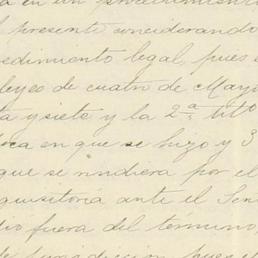 en un procedimiento
l presente considerando
edimiento legal, pues s
leyes de cuatro de Mayo
ta y siete y la 2.ª tit.º
ca en que se hizo y 3
que se rindiera por el
quisitoria ante el Sen
dio fuera del termino,